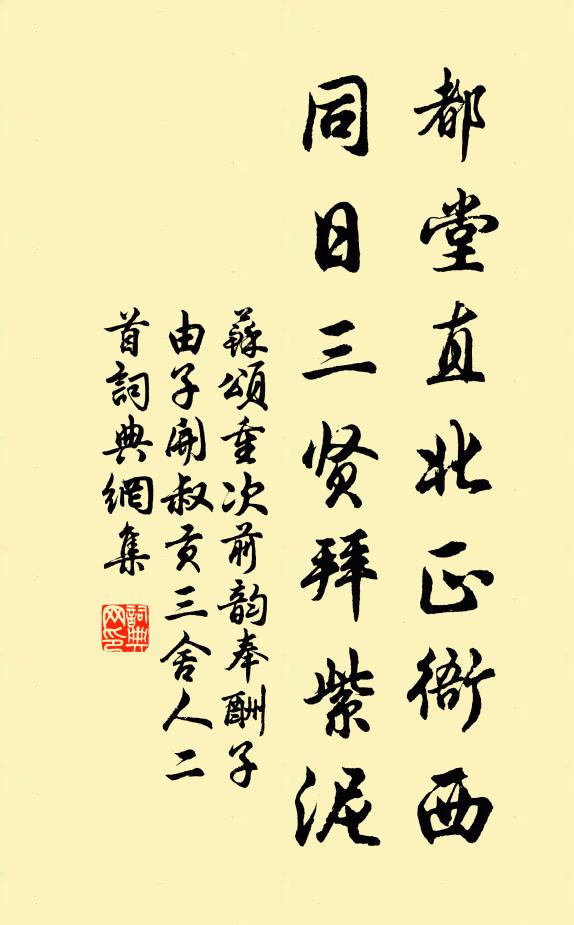 都堂直北正衙西
同日三贤拜紫泥
蘇頌重次前韵奉酬子
由子開叔贡三舍人二
首詞典網集
詞典网印